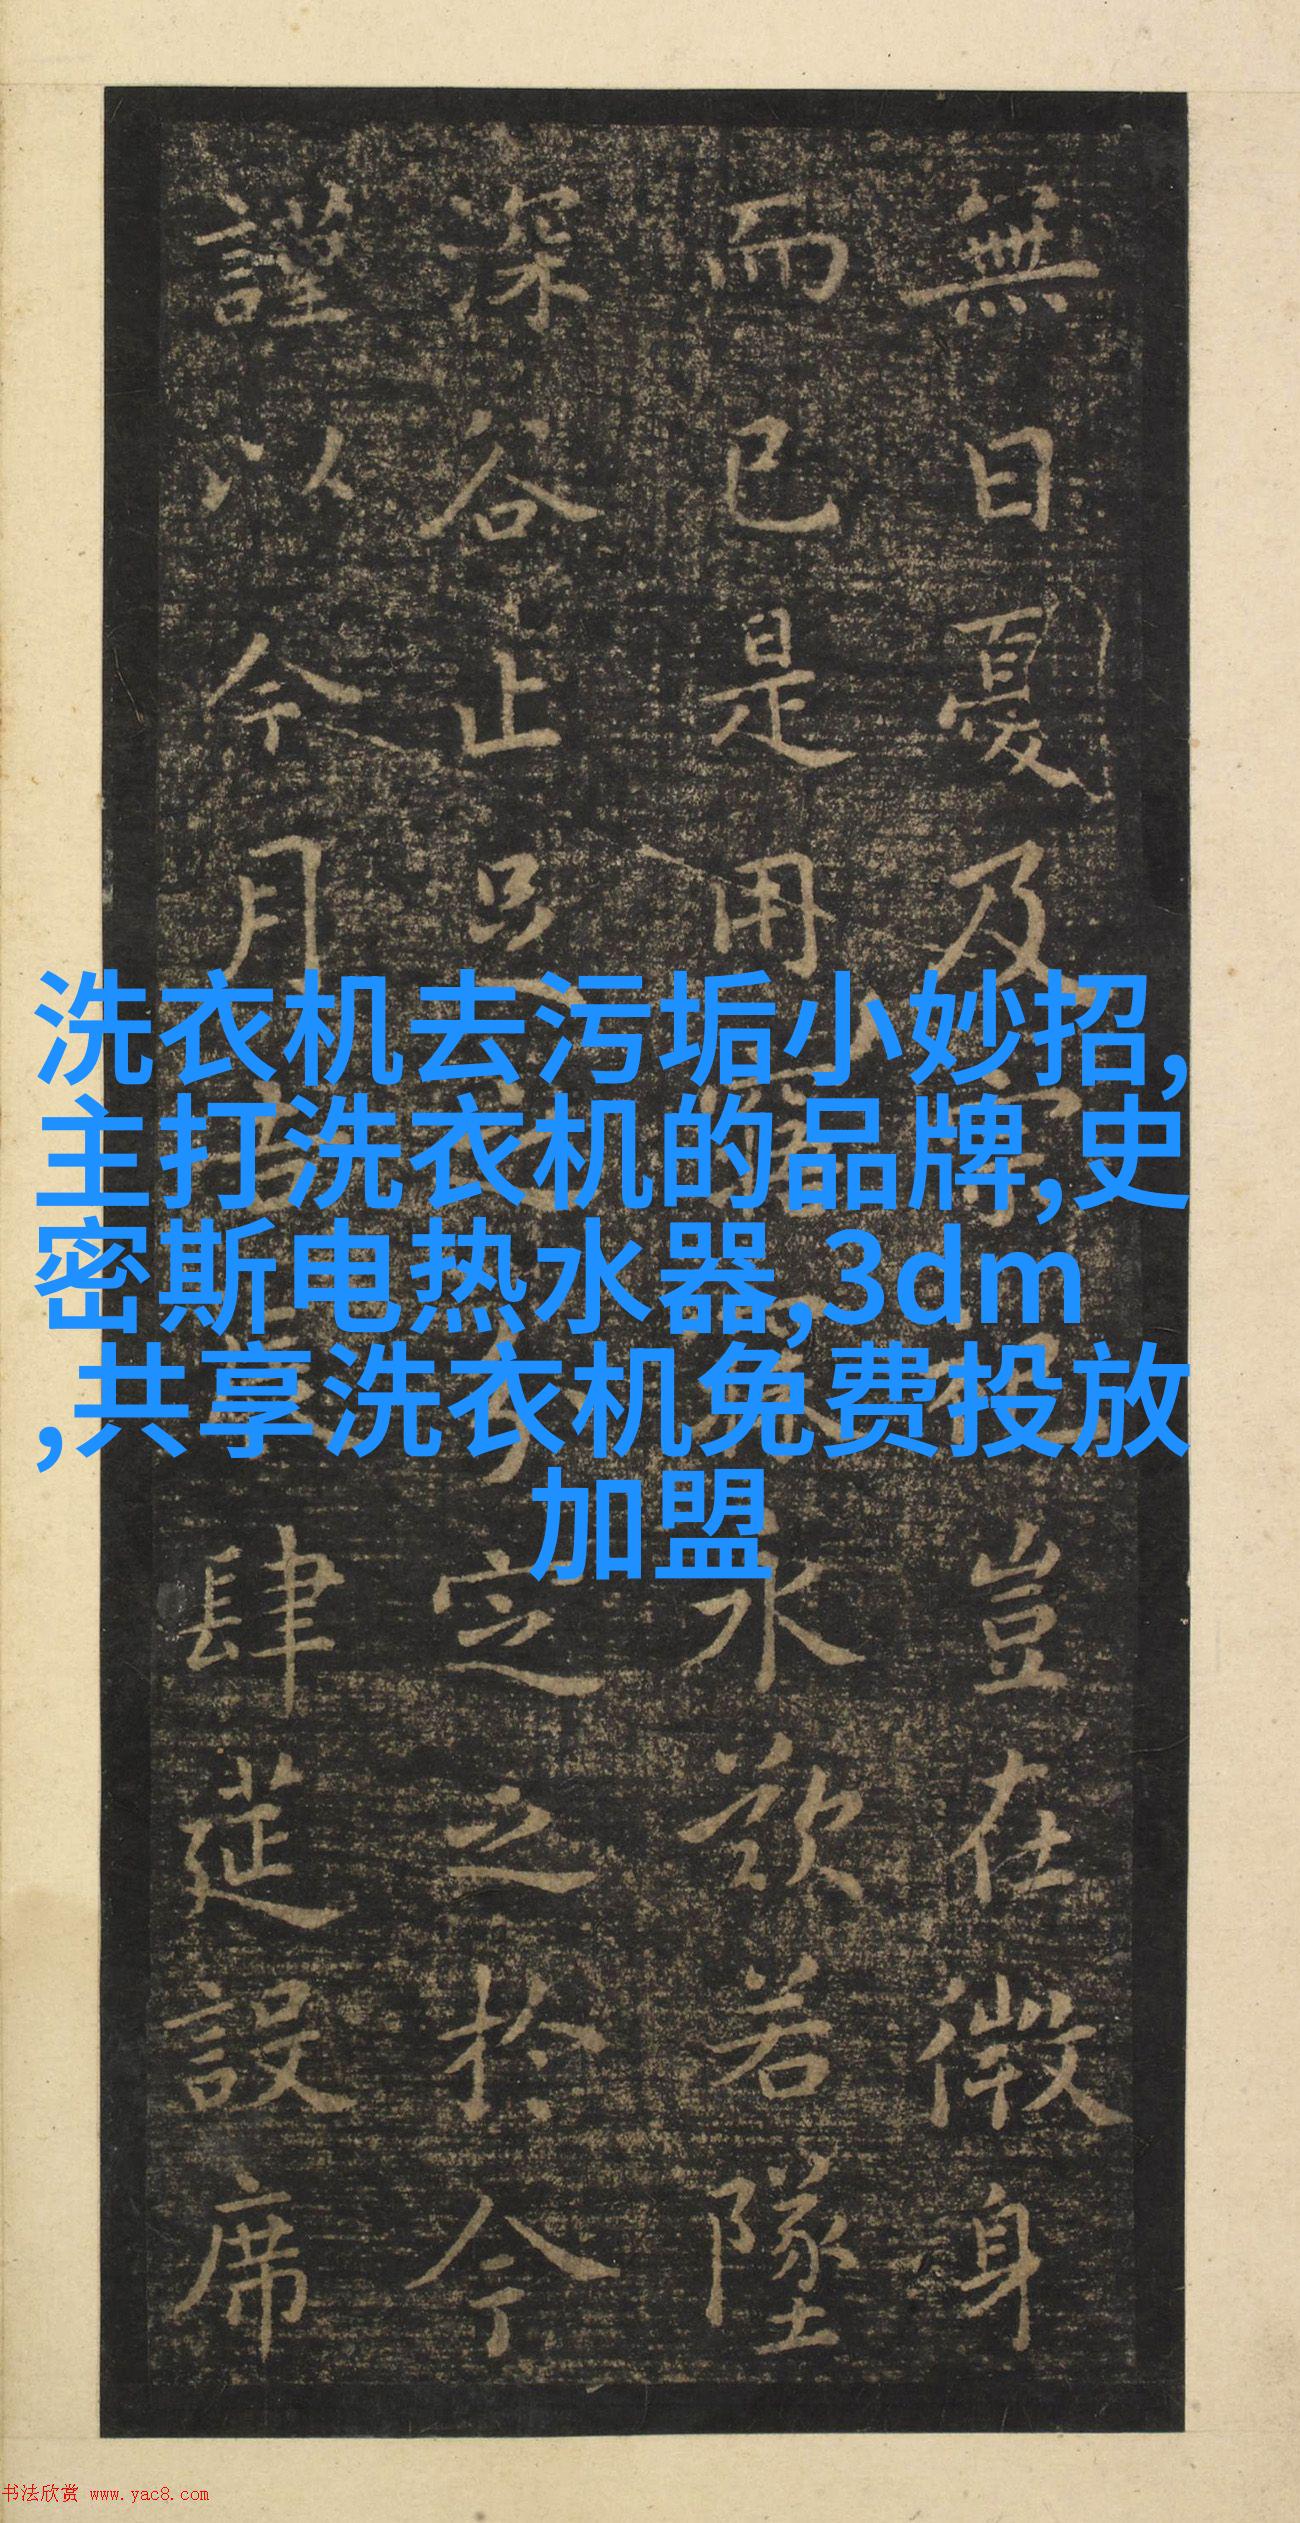 無日憂及豈在微身
而已是用永歎若墜
深谷止足定之於今
謹以今月肆筵設席
洗衣机去污垢小妙招,
主打洗衣机的品牌,史
密斯电热水器,3dm
,共享洗衣机免费投放
加盟
书法欣赏 www.yac8.com